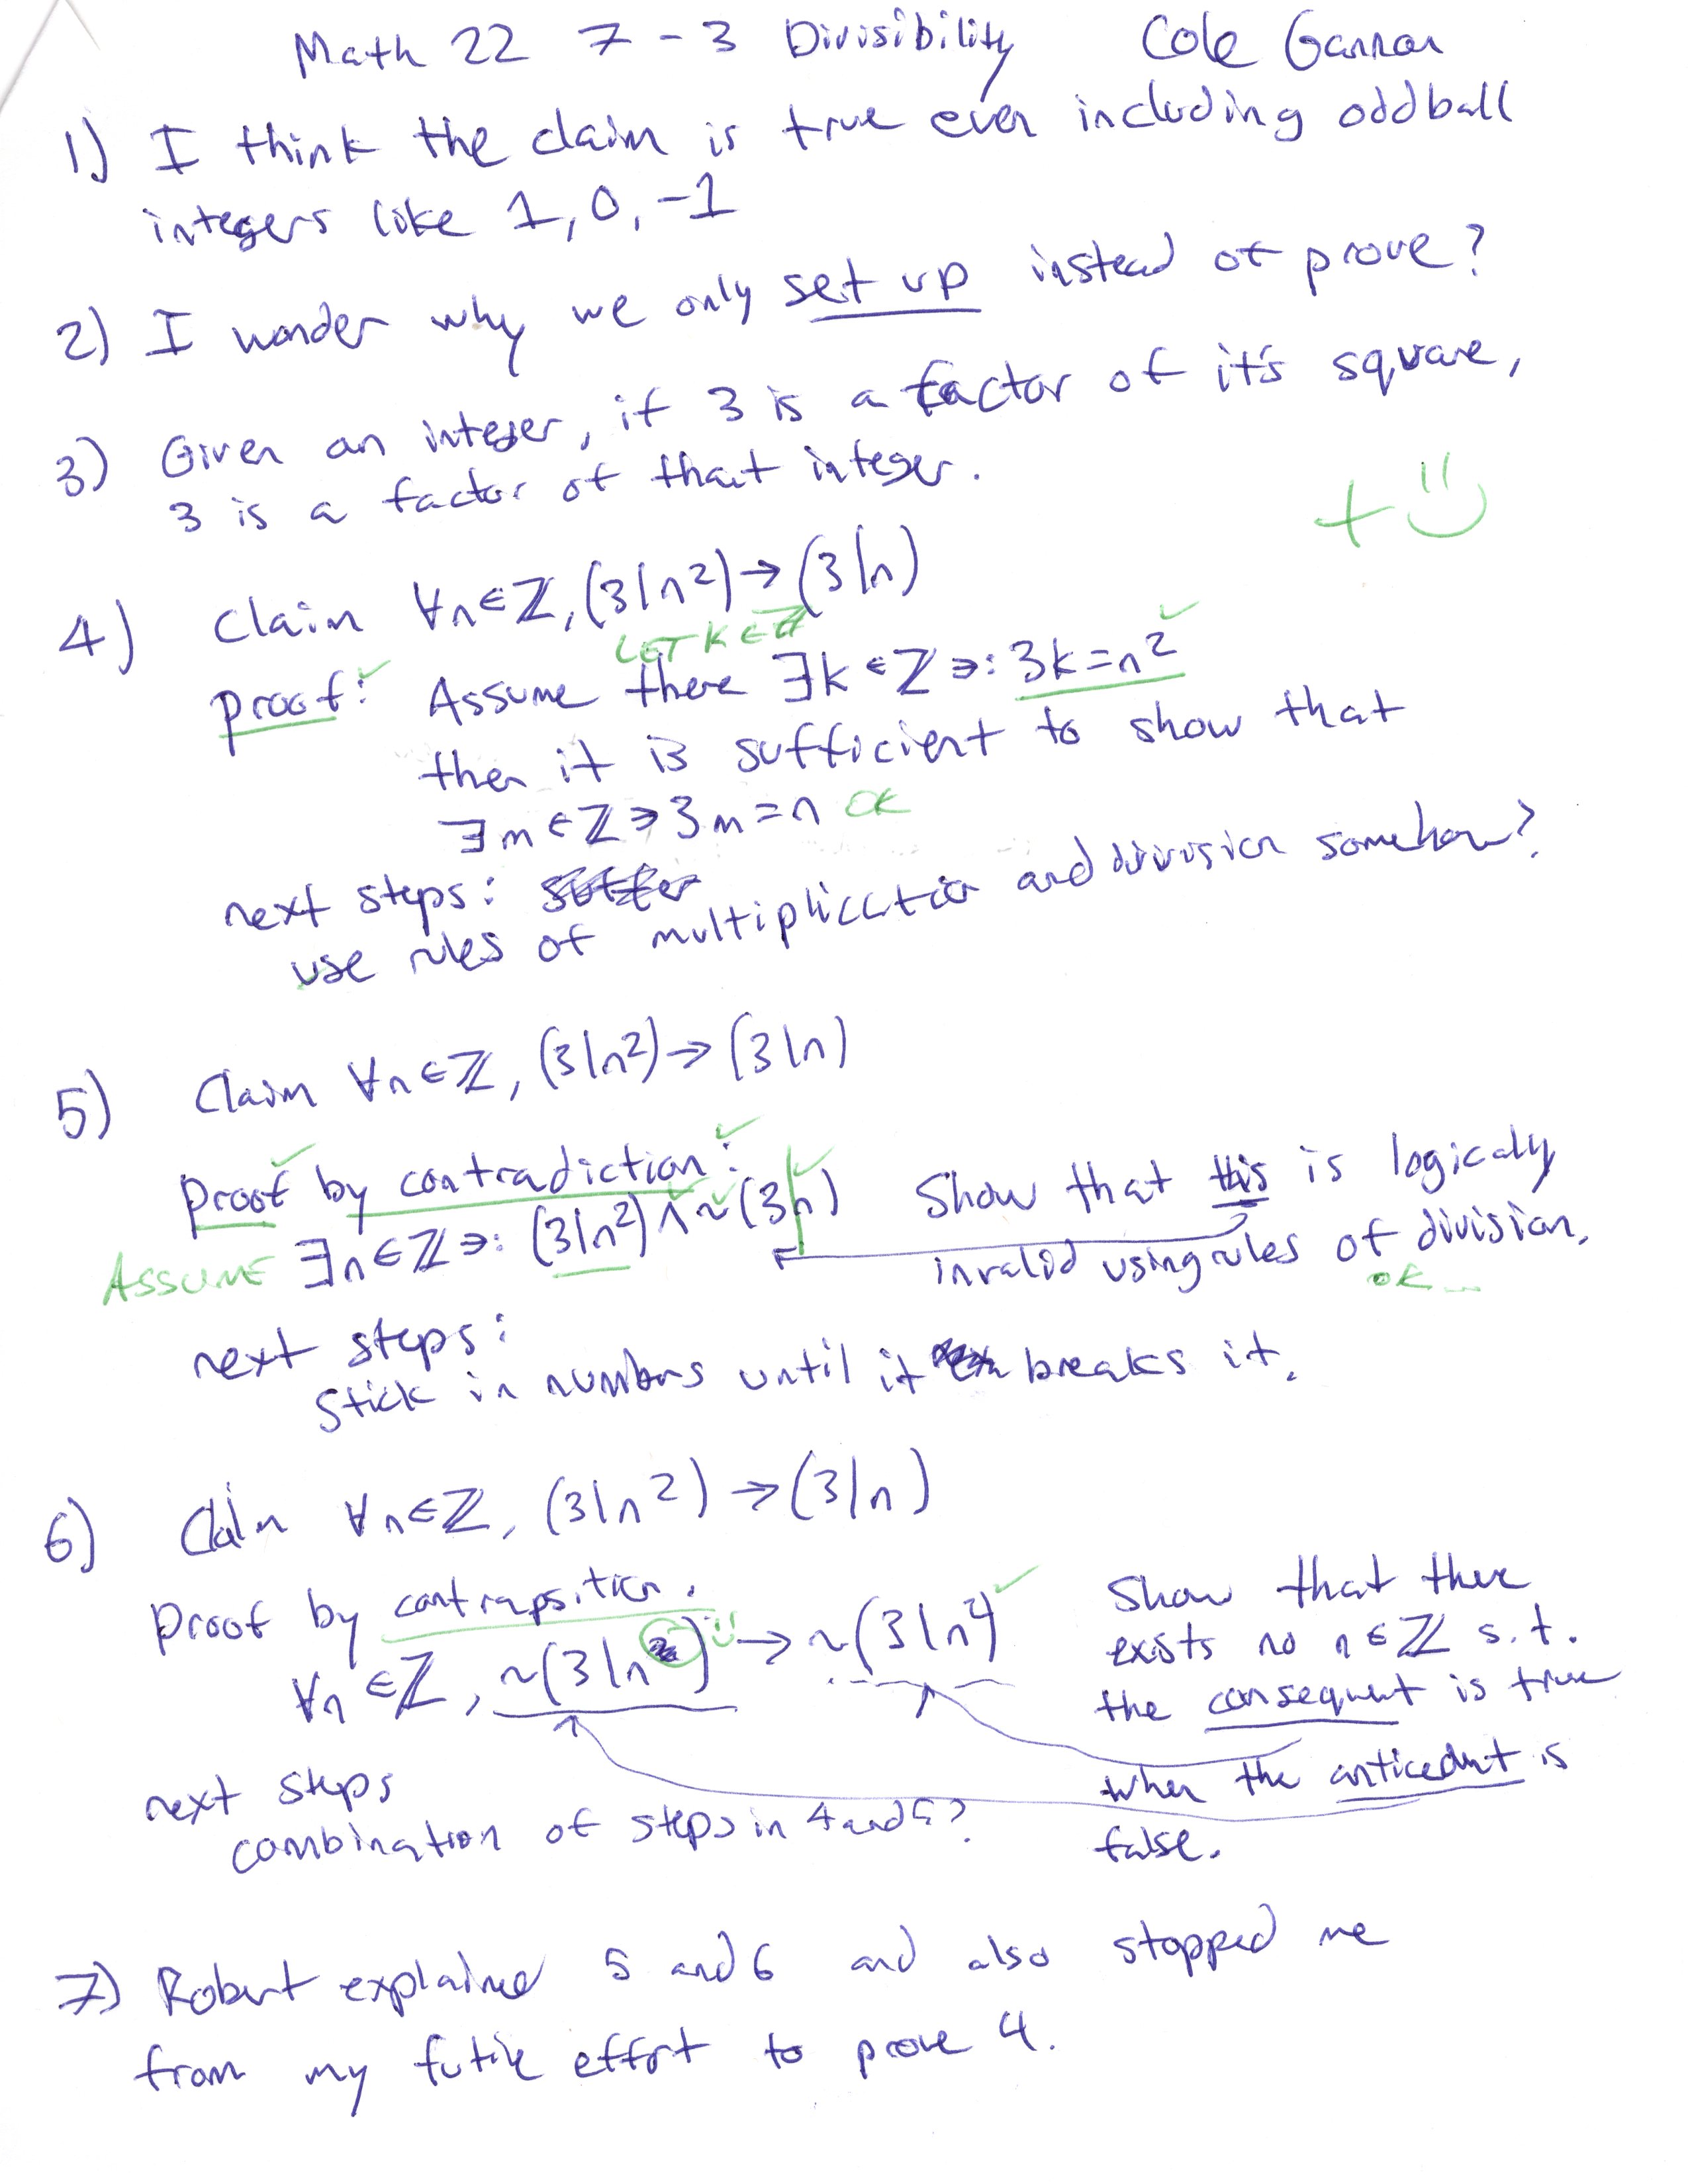 Math 22 7-3 Divisibility Cole Gannon
1) I think the claim is true even including oddball
integers like 1, 0, -1
2) I wonder why we only set up instead of prove?
3) Given an integer, if 3 is a factor of it's square,
3 is a factor of that integer.
+ ت
4) Claim ∀n∈ℤ, (3|n²)→(3|n)
LET K∈ℤ
proof: Assume there ∃k∈ℤ∋: 3k=n² ✓
then it is sufficient to show that
∃m∈ℤ∋3m=n OK
next steps:
use rules of multiplication and division somehow?
5) Claim ∀n∈ℤ, (3|n²)→(3|n)
Proof by contradiction: Show that this is logically
ASSUME ∃n∈ℤ∋: (3|n²)∧~(3|n) invalid using rules of division.
OK...
next steps:
Stick in numbers until it breaks it.
6) Claim ∀n∈ℤ, (3|n²)→(3|n)
Proof by contrapsition. Show that there
∀n∈ℤ, ~(3|n)→~(3|n²) ✓ exists no n∈ℤ s.t.
the consequent is true
next steps when the anticedent is
combination of steps in 4 and 5? false.
7) Robert explained 5 and 6 and also stopped me
from my futile effort to prove 4.